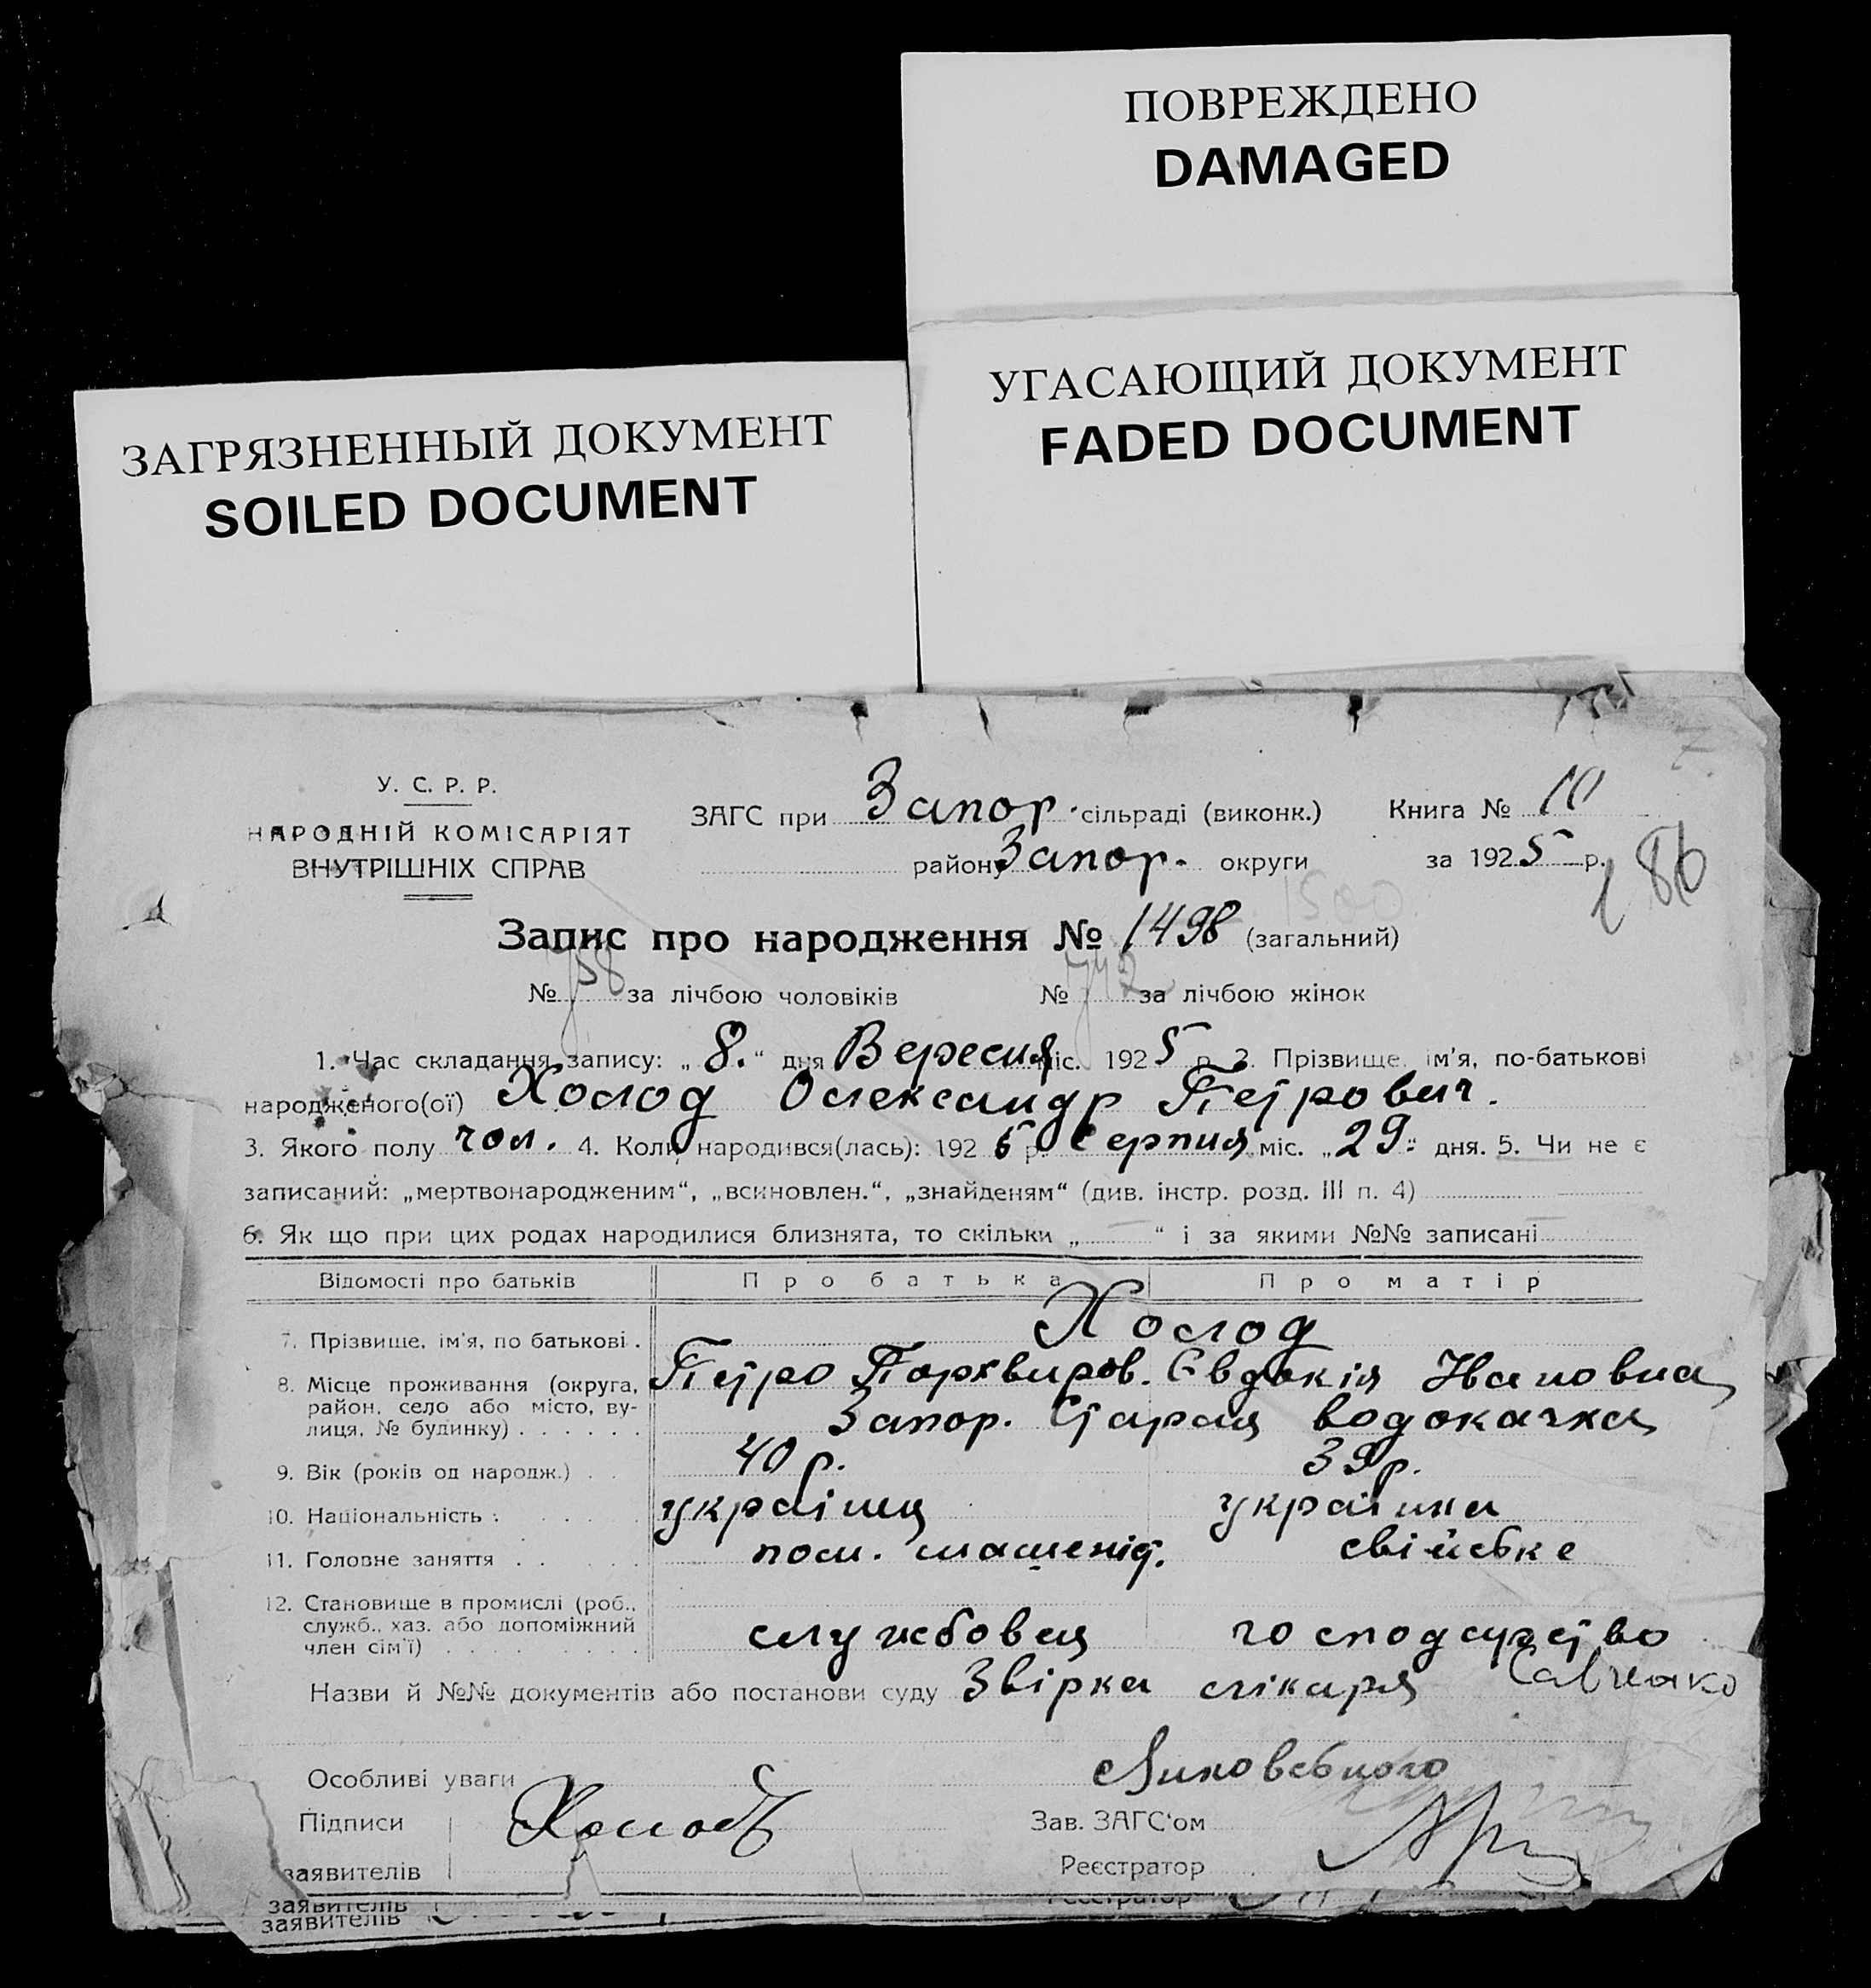 ПОВРЕЖДЕНО
DAMAGED
УГАСАЮЩИЙ ДОКУМЕНТ
FADED DOCUMENT
ЗАГРЯЗНЕННЫЙ ДОКУМЕНТ
SOILED DOCUMENT
У. С. Р. Р.
НАРОДНІЙ КОМІСАРІЯТ
ВНУТРІШНІХ СПРАВ
ЗАГС при Запор. сільраді (виконк.) Книга № 10
району Запор. округи за 1925 р.
186
1500
Запис про народження № 1498 (загальний)
№ 758 за лічбою чоловіків № 742 за лічбою жінок
1. Час складання запису: „8.“ дня Вересня міс. 1925 р. 2. Прізвище, ім'я, по-батькові
народженого(ої) Холод Олександр Петрович.
3. Якого полу чол. 4. Коли народився(лась): 1925 р. Серпня міс. „29“ дня. 5. Чи не є
записаний: „мертвонародженим“, „всиновлен.“, „знайденям“ (див. інстр. розд. III п. 4)
6. Як що при цих родах народилися близнята, то скільки „ “ і за якими №№ записані
Відомості про батьків Про батька Про матір
7. Прізвище, ім'я, по батькові . Холод
Петро Порхвиров. Євдокія Ивановна
8. Місце проживання (округа, район, село або місто, вулиця, № будинку) Запор. Стара водокачка
9. Вік (років од народж.) 40 р. 39 р.
10. Національність українц українка
11. Головне заняття пом. машеніст. свійське
12. Становище в промислі (роб., служб., хаз. або допоміжний член сім'ї) службовец господарство
Назви й №№ документів або постанови суду Звірка лікаря
Особливі уваги
Підписи Холодъ Зав. ЗАГС'ом
заявителів Реєстратор
заявителів Реєстратор
заявителів